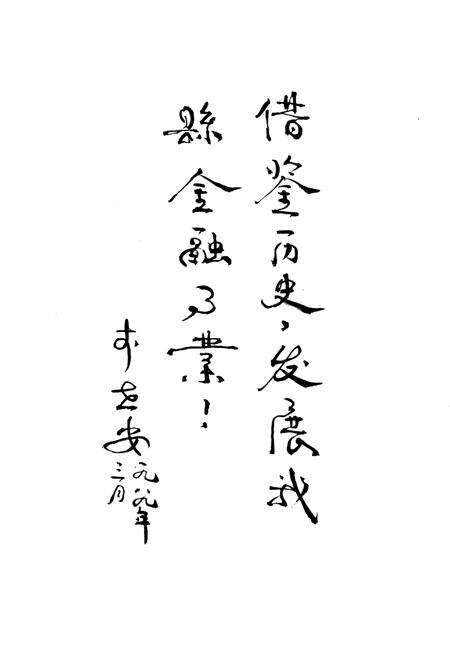 借鉴历史，发展我
縣金融事業！
安
一九八九年
三月